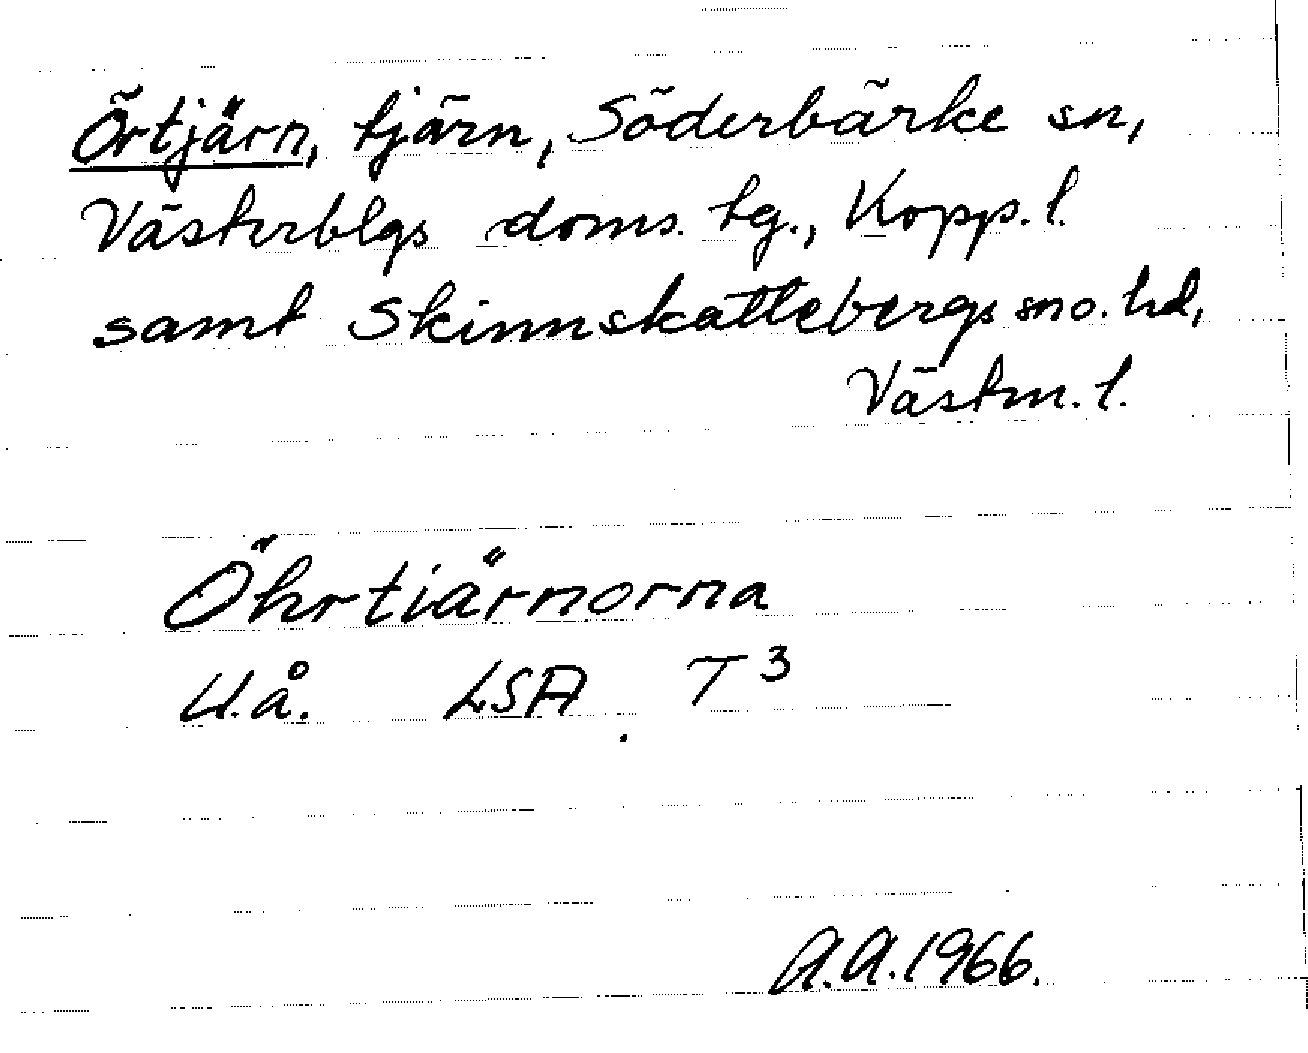 Örtjärn, tjärn, Söderbärke sn,
Västerblgs doms. tg., Kopp. l.
samt Skinnskattebergs sn o. hd,
Västm. l.
Öhrtiärnorna
U.å. LSA T³
A.A. 1966.